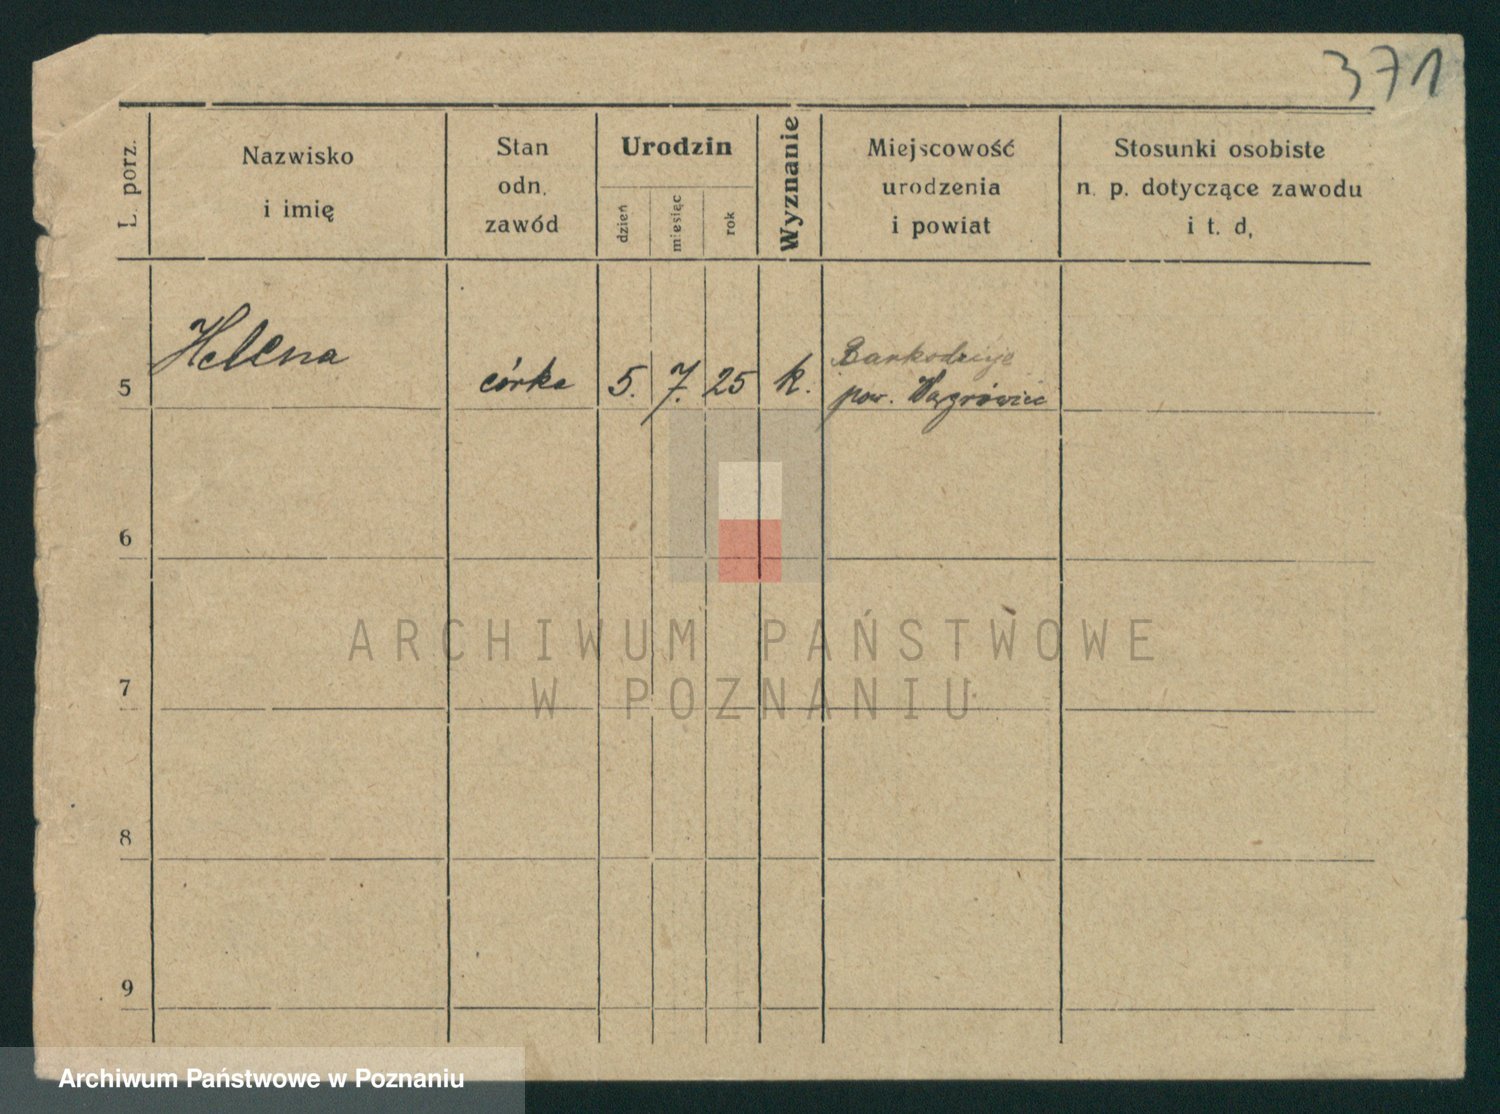 371
L. porz.
Nazwisko
i imię
Stan
odn.
zawód
Urodzin
dzień
miesiąc
rok
Wyznanie
Miejscowość
urodzenia
i powiat
Stosunki osobiste
n. p. dotyczące zawodu
i t. d,
5
Helena
córka
5.
7.
25
k.
pow. Wągrówiec
6
7
8
9
ARCHIWUM PAŃSTWOWE
W POZNANIU
Archiwum Państwowe w Poznaniu